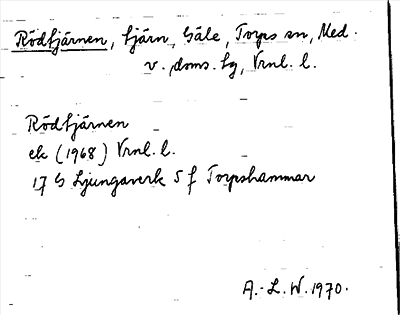 Rödtjärnen, tjärn, Gåle, Torps sn, Med.
v. doms. tg, Vrnl. l.
Rödtjärnen
ek (1968) Vrnl. l.
17 G Ljungaverk 5 f Torpshammar
A.-L. W. 1970.